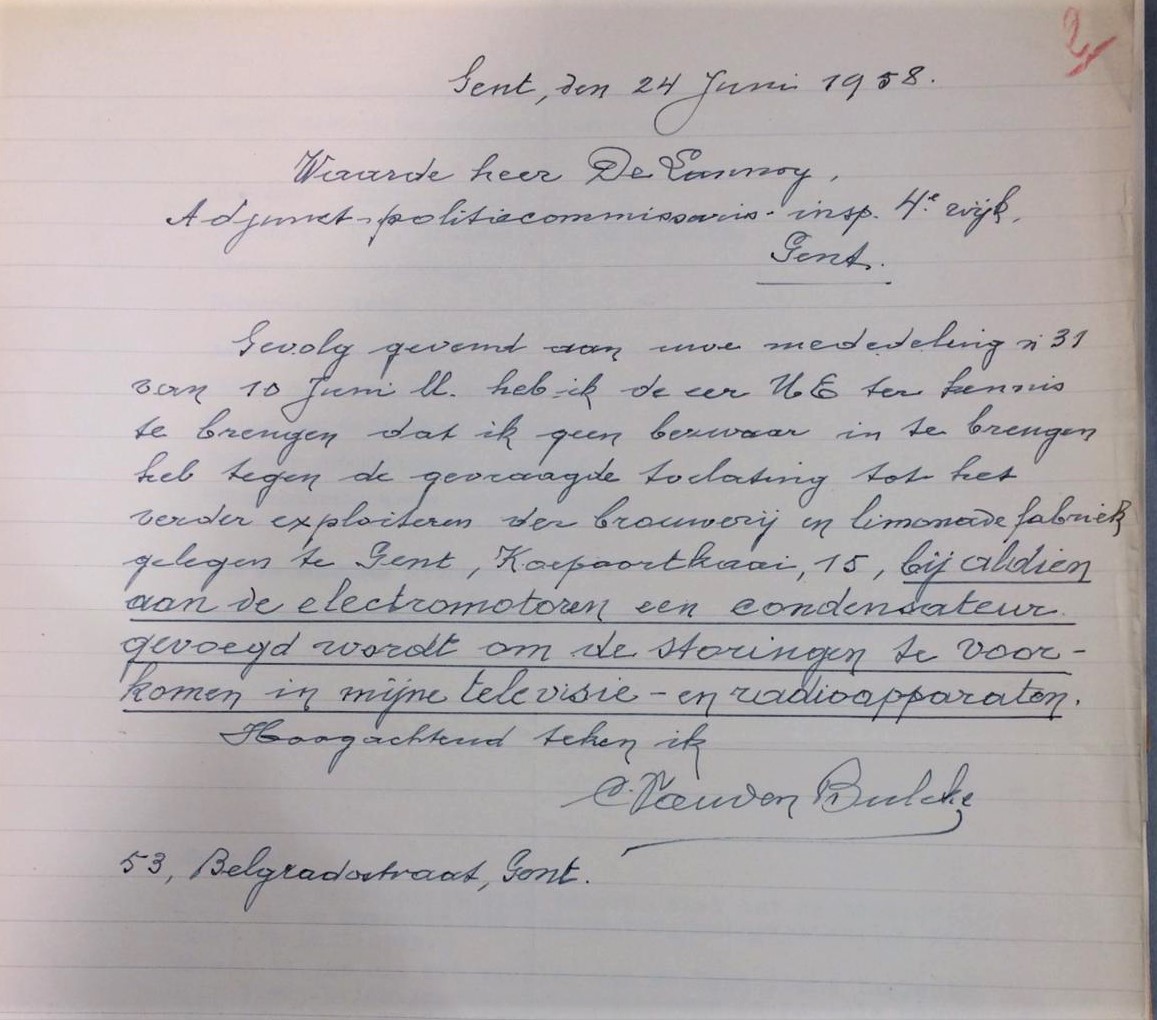 2
Gent, den 24 Juni 1958.
Waarde heer De Lannoy,
Adjunct-politiecommissaris-insp. 4e wijk,
Gent.
Gevolg gevend aan uwe mededeling n° 31
van 10 Juni ll. heb ik de eer UE ter kennis
te brengen dat ik geen bezwaar in te brengen
heb tegen de gevraagde toelating tot het
verder exploiteren der brouwerij en limonadefabriek
gelegen te Gent, Koepoortkaai, 15, bij aldien
aan de electromotoren een condensateur
gevoegd wordt om de storingen te voor-
komen in mijne televisie- en radioapparaten.
Hoogachtend teken ik
C. Vanden Bulcke
53, Belgradostraat, Gent.